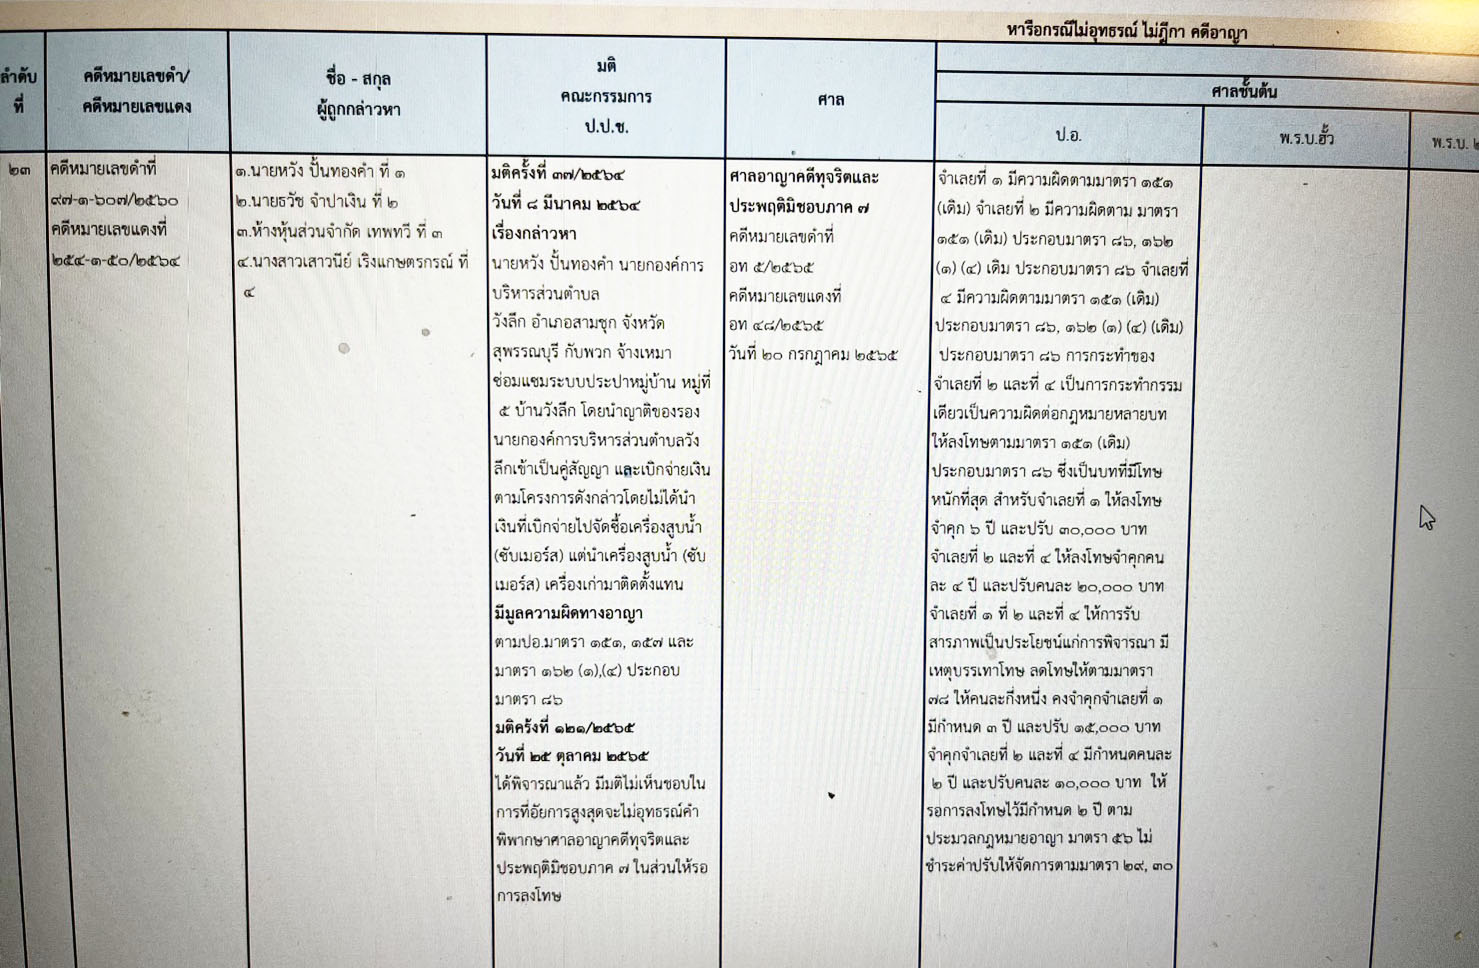 หารือกรณีไม่อุทธรณ์ ไม่ฎีกา คดีอาญา
ลำดับ
ที่
คดีหมายเลขดำ/
คดีหมายเลขแดง
ชื่อ - สกุล
ผู้ถูกกล่าวหา
มติ
คณะกรรมการ
ป.ป.ช.
ศาล
ศาลชั้นต้น
ป.อ.
พ.ร.บ.ฮั้ว
พ.ร.บ.
๒๓
คดีหมายเลขดำที่
๙๗-๑-๖๐๗/๒๕๖๐
คดีหมายเลขแดงที่
๒๕๔-๑-๕๐/๒๕๖๔
๑.นายหวัง ปั้นทองคำ ที่ ๑
๒.นายธวัช จำปาเงิน ที่ ๒
๓.ห้างหุ้นส่วนจำกัด เทพทวี ที่ ๓
๔.นางสาวเสาวนีย์ เริงแกษตรกรณ์ ที่
๔
มติครั้งที่ ๓๗/๒๕๖๔
วันที่ ๘ มีนาคม ๒๕๖๔
เรื่องกล่าวหา
นายหวัง ปั้นทองคำ นายกองค์การ
บริหารส่วนตำบล
วังลึก อำเภอสามชุก จังหวัด
สุพรรณบุรี กับพวก จ้างเหมา
ซ่อมแซมระบบประปาหมู่บ้าน หมู่ที่
๕ บ้านวังลึก โดยนำญาติของรอง
นายกองค์การบริหารส่วนตำบลวัง
ลึกเข้าเป็นคู่สัญญา และเบิกจ่ายเงิน
ตามโครงการดังกล่าวโดยไม่ได้นำ
เงินที่เบิกจ่ายไปจัดซื้อเครื่องสูบน้ำ
(ซับเมอร์ส) แต่นำเครื่องสูบน้ำ (ซับ
เมอร์ส) เครื่องเก่ามาติดตั้งแทน
มีมูลความผิดทางอาญา
ตามปอ.มาตรา ๑๕๑, ๑๕๗ และ
มาตรา ๑๖๒ (๑),(๔) ประกอบ
มาตรา ๘๖
มติครั้งที่ ๑๒๑/๒๕๖๕
วันที่ ๒๕ ตุลาคม ๒๕๖๕
ได้พิจารณาแล้ว มีมติไม่เห็นชอบใน
การที่อัยการสูงสุดจะไม่อุทธรณ์คำ
พิพากษาศาลอาญาคดีทุจริตและ
ประพฤติมิชอบภาค ๗ ในส่วนให้รอ
การลงโทษ
ศาลอาญาคดีทุจริตและ
ประพฤติมิชอบภาค ๗
คดีหมายเลขดำที่
อท ๕/๒๕๖๕
คดีหมายเลขแดงที่
อท ๔๘/๒๕๖๕
วันที่ ๒๐ กรกฎาคม ๒๕๖๕
จำเลยที่ ๑ มีความผิดตามมาตรา ๑๕๑
(เดิม) จำเลยที่ ๒ มีความผิดตาม มาตรา
๑๕๑ (เดิม) ประกอบมาตรา ๘๖, ๑๖๒
(๑) (๔) เดิม ประกอบมาตรา ๘๖ จำเลยที่
๔ มีความผิดตามมาตรา ๑๕๑ (เดิม)
ประกอบมาตรา ๘๖, ๑๖๒ (๑) (๔) (เดิม)
ประกอบมาตรา ๘๖ การกระทำของ
จำเลยที่ ๒ และที่ ๔ เป็นการกระทำกรรม
เดียวเป็นความผิดต่อกฎหมายหลายบท
ให้ลงโทษตามมาตรา ๑๕๑ (เดิม)
ประกอบมาตรา ๘๖ ซึ่งเป็นบทที่มีโทษ
หนักที่สุด สำหรับจำเลยที่ ๑ ให้ลงโทษ
จำคุก ๖ ปี และปรับ ๓๐,๐๐๐ บาท
จำเลยที่ ๒ และที่ ๔ ให้ลงโทษจำคุกคน
ละ ๔ ปี และปรับคนละ ๒๐,๐๐๐ บาท
จำเลยที่ ๑ ที่ ๒ และที่ ๔ ให้การรับ
สารภาพเป็นประโยชน์แก่การพิจารณา มี
เหตุบรรเทาโทษ ลดโทษให้ตามมาตรา
๗๘ ให้คนละกึ่งหนึ่ง คงจำคุกจำเลยที่ ๑
มีกำหนด ๓ ปี และปรับ ๑๕,๐๐๐ บาท
จำคุกจำเลยที่ ๒ และที่ ๔ มีกำหนดคนละ
๒ ปี และปรับคนละ ๑๐,๐๐๐ บาท ให้
รอการลงโทษไว้มีกำหนด ๒ ปี ตาม
ประมวลกฎหมายอาญา มาตรา ๕๖ ไม่
ชำระค่าปรับให้จัดการตามมาตรา ๒๙, ๓๐
-